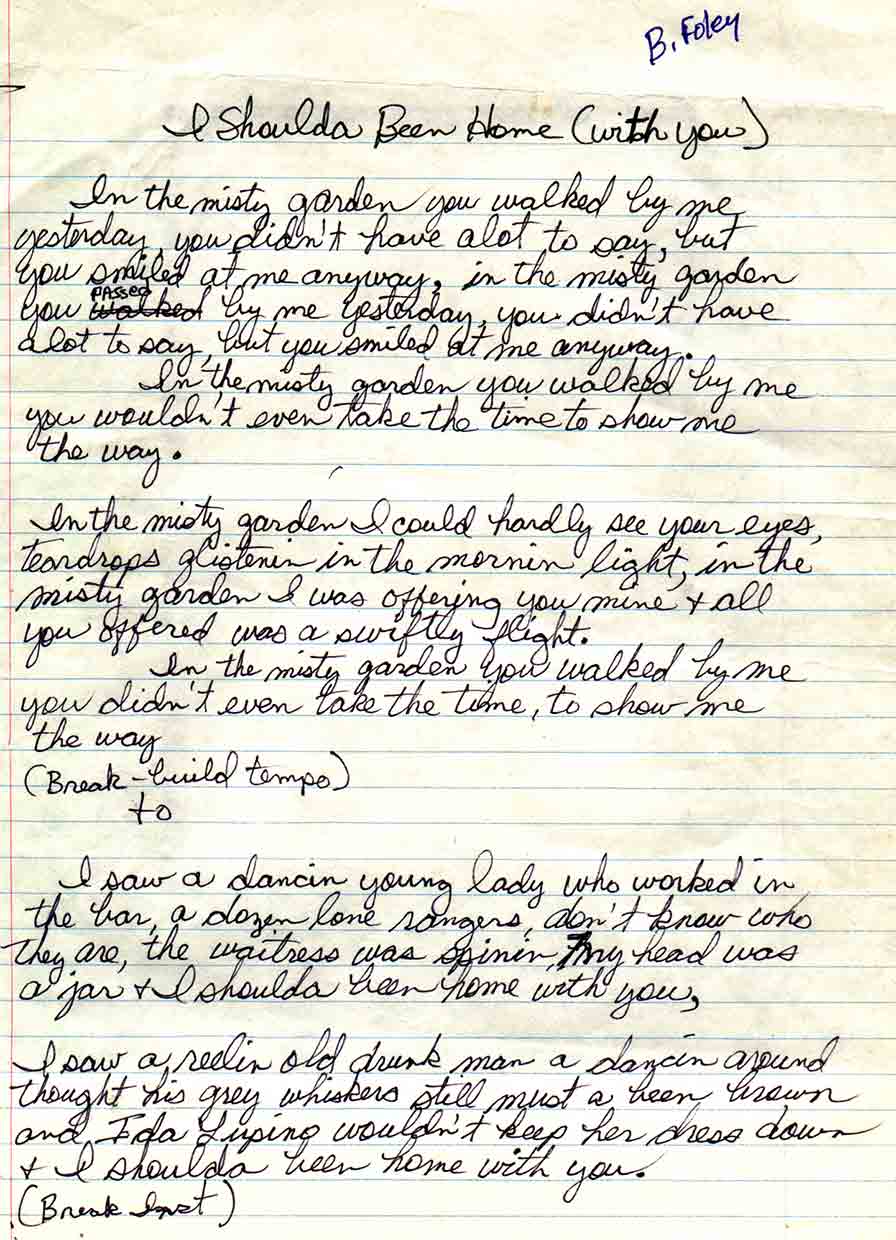 B. Foley
I Shoulda Been Home (with you)
In the misty garden you walked by me
yesterday, you didn't have alot to say, but
you smiled at me anyway, in the misty garden
PASSED
you walked by me yesterday, you didn't have
alot to say, but you smiled at me anyway.
In the misty garden you walked by me
you wouldn't even take the time to show me
the way.
In the misty garden I could hardly see your eyes,
teardrops glistenin in the mornin light, in the
misty garden I was offering you mine + all
you offered was a swiftly flight.
In the misty garden you walked by me
you didn't even take the time, to show me
the way
(Break - build tempo)
to
I saw a dancin young lady who worked in
the bar, a dozen lone rangers, don't know who
they are, the waitress was spinin, my head was
a jar + I shoulda been home with you,
I saw a reelin old drunk man a dancin around
thought his grey whiskers still must a been brown
and Ida Lupino wouldn't keep her dress down
+ I shoulda been home with you.
(Break Inst)